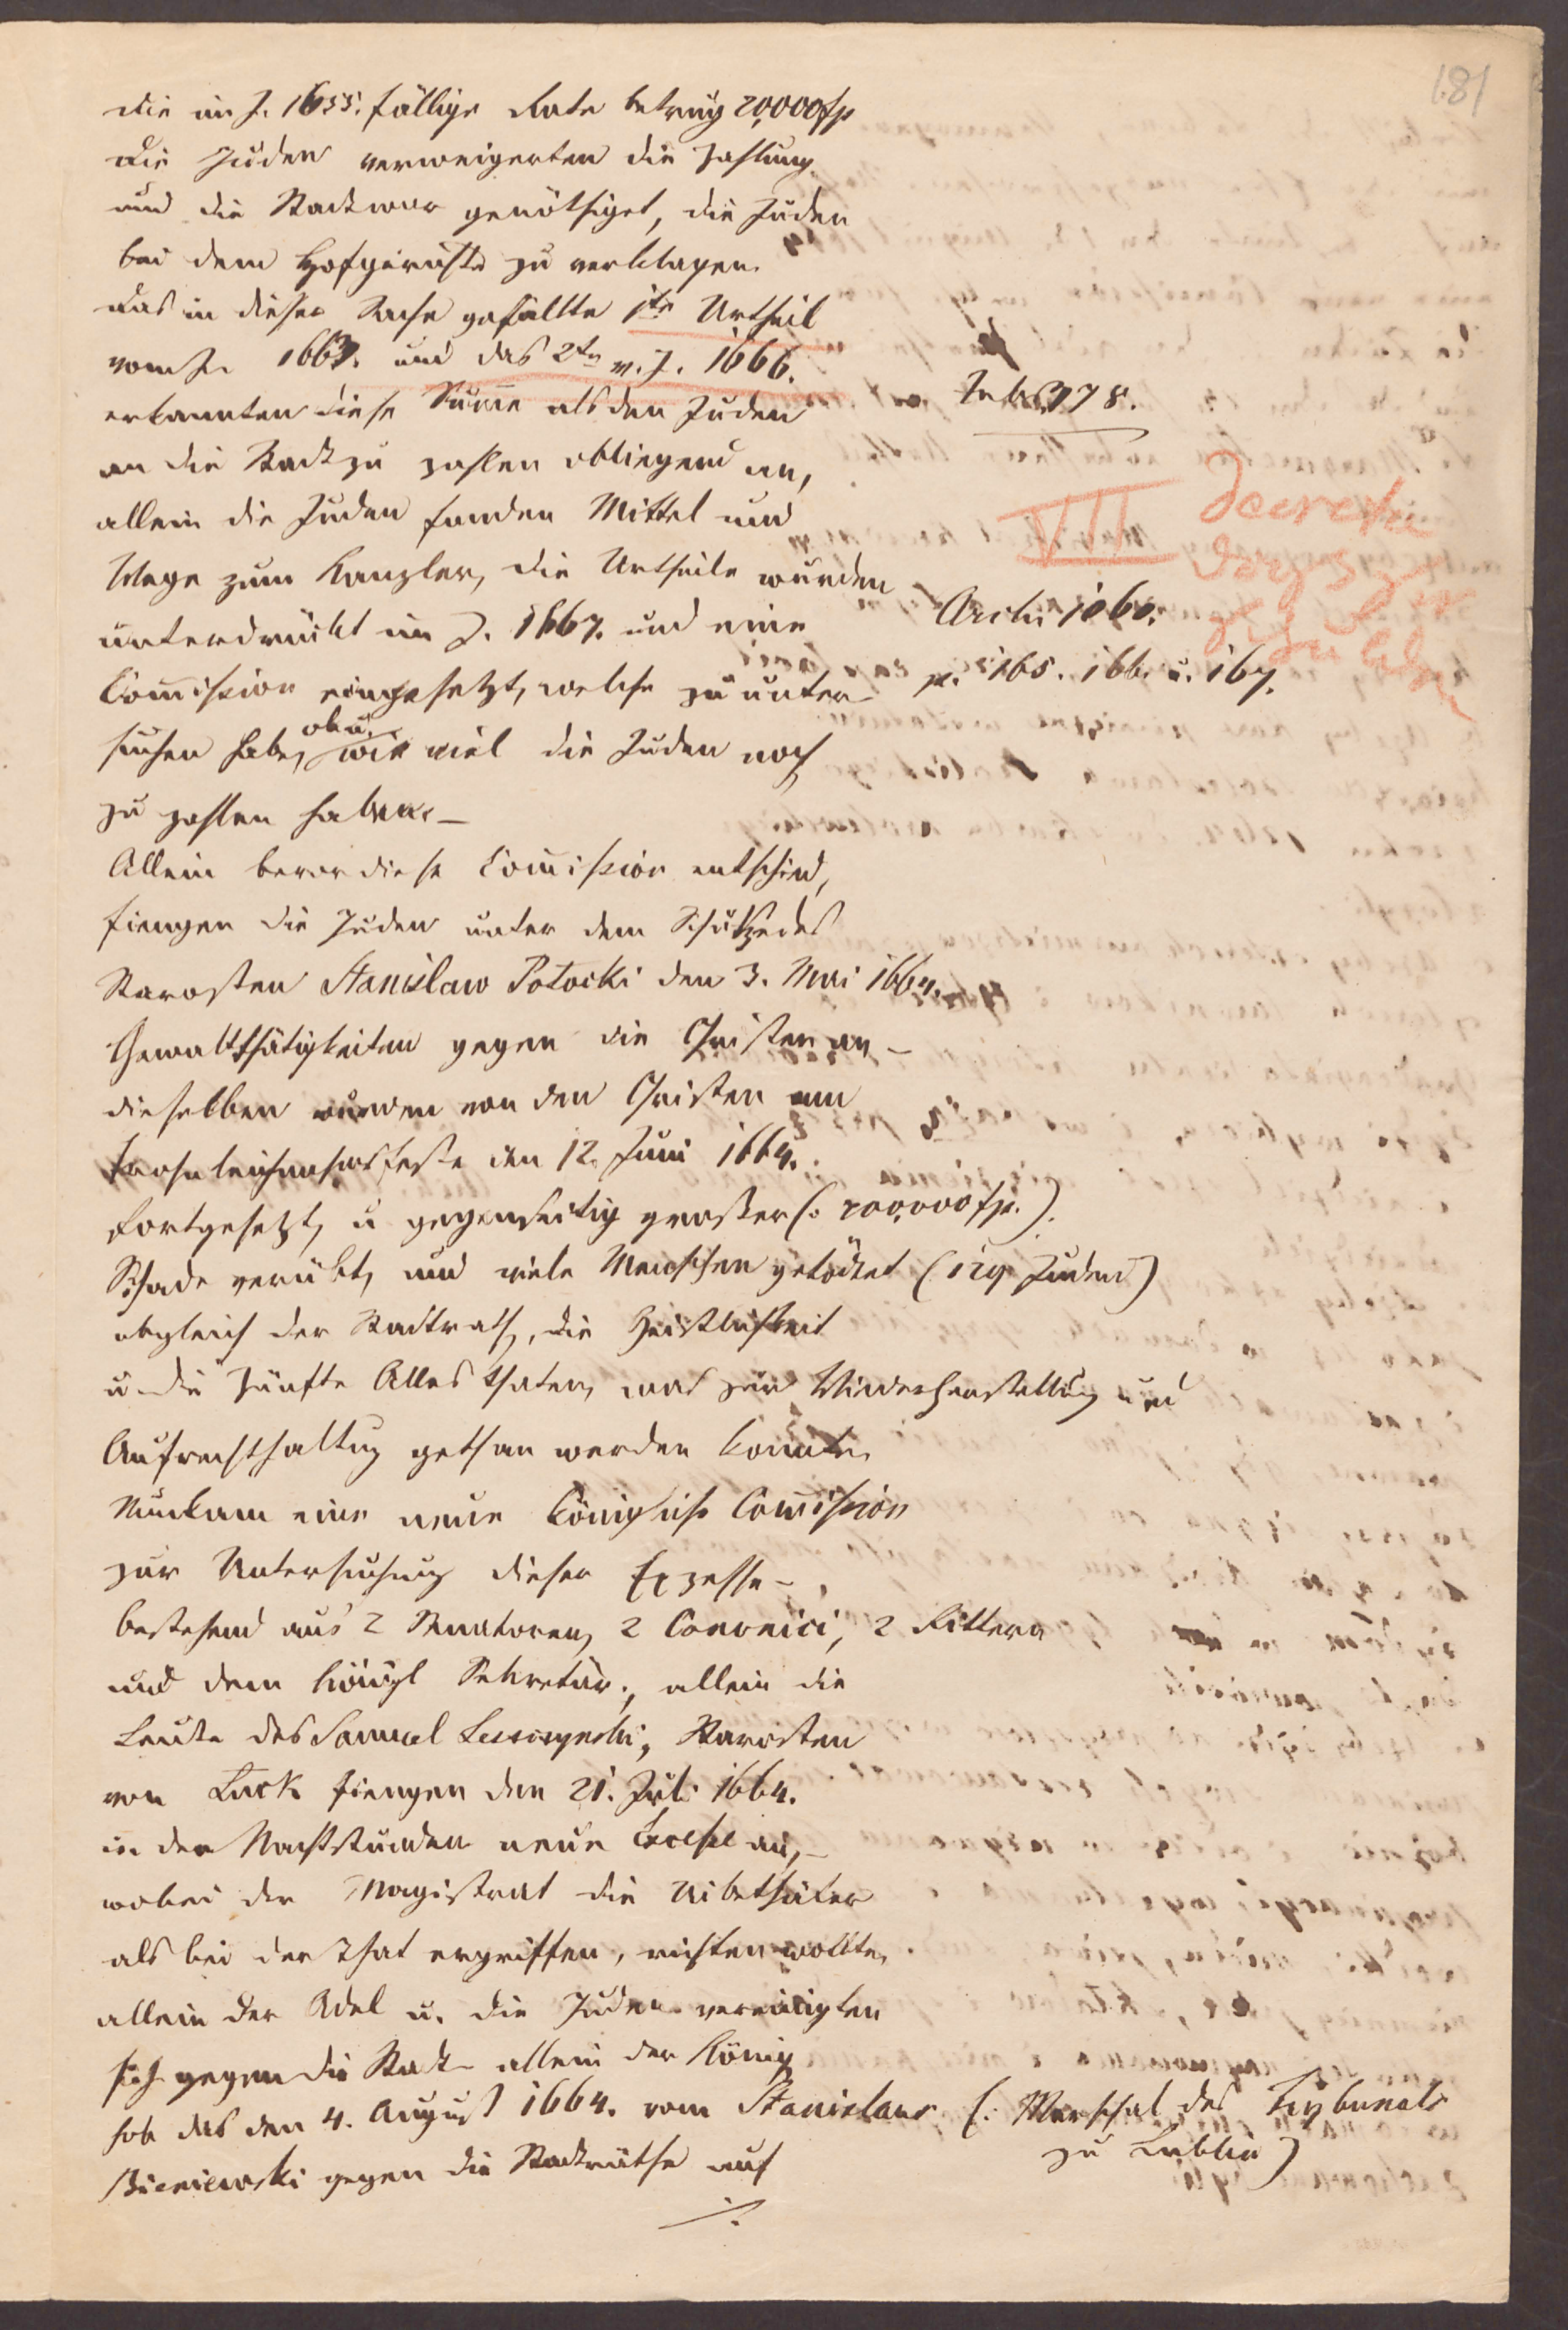 181
die im J. 1655. fällige Rate betrug 20,000 fp
die Juden verweigerten die Zahlung
und die Stadt war genöthiget, die Juden
bei dem Hofgerichte zu verklagen.
das in dieser Sache gefällte 1te Urtheil
vom J. 1663. und das 2te v. J. 1666.
erkannten diese Sume als den Juden
an die Stadt zu zahlen obliegend an,
allein die Juden fanden Mittel und
Wege zum Kanzler, die Urtheile wurden
unterdrückt im J. 1667. und eine
Comission eingesetzt, welche zu unter-
suchen habe, ob u. wie viel die Juden noch
zu zahlen haben. –
Allein bevor diese Comission entschied,
fiengen die Juden unter dem Schutze des
Starosten Stanislaw Potocki den 3. Mai 1664.
Gewaltthätigkeiten gegen die Christen an –
dieselben wurden von den Christen am
Frohnleichnahmsfeste den 12. Juni 1664.
fortgesetzt, u gegenseitig großer (: 200,000 fp. ).
Schade verübt, und viele Menschen getödtet (129 Juden)
obgleich der Stadtrath, die Geistlichkeit
u die Zünfte Alles thaten, was zur Wiederherstellung und
Aufrechthaltug gethan werden konnte.
Nun kam eine neue königliche Comission
zur Untersuchung dieser Exzesse –
bestehend aus 2 Senatoren, 2 Canonici, 2 Rittern
und dem königl Sekretär., allein die
Leute des Samuel Leszczynski, Starosten
von Łuck fiengen den 21. Juli 1664.
in den Nachtstunden neue Excesse an, –
wobei der Magistrat die Uibelthäter
als bei der That ergriffen, richten wollte,
allein der Adel u. die Juden vereinigten
sich gegen die Stadt – allein der König
hob das den 4. August 1664. vom Stanislaus (: Marschal des Trybunals
zu Lublin )
Bieniewski gegen die Stadträthe auf
./.
378.
VII Decreta
Archi 1060.
p. 165. 166. u. 167.